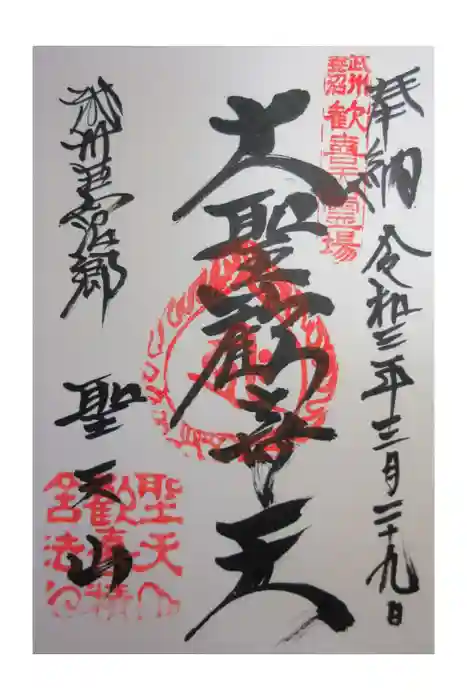 奉納 令和三年十二月二十九日
武州
妻沼
歓喜天霊場
大聖歓喜天
武州妻沼郷
聖天山
聖天山
歓喜精
舎法印